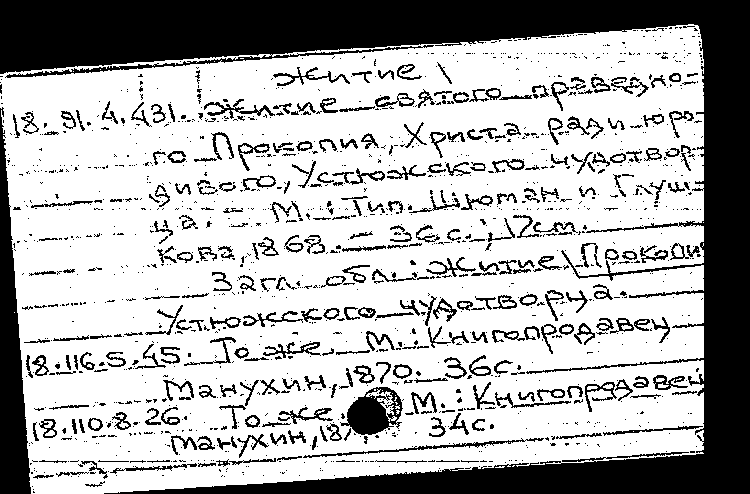 Житие \
18.91.4.431. Житие святого праведно-
го Прокопия, Христа ради юро-
дивого, Устюжского чудотвор-
ца. - М.: Тип. Шюман и Глуш-
кова, 1868. - 36 с.; 17 см.
Загл. обл.: Житие \ Прокопия
Устюжского чудотворца.
18.116.5.45. То же. М.: Книгопродавец
Манухин, 1870. 36 с.
18.110.8.26. То же. М.: Книгопродавец
Манухин, 34 с.
3